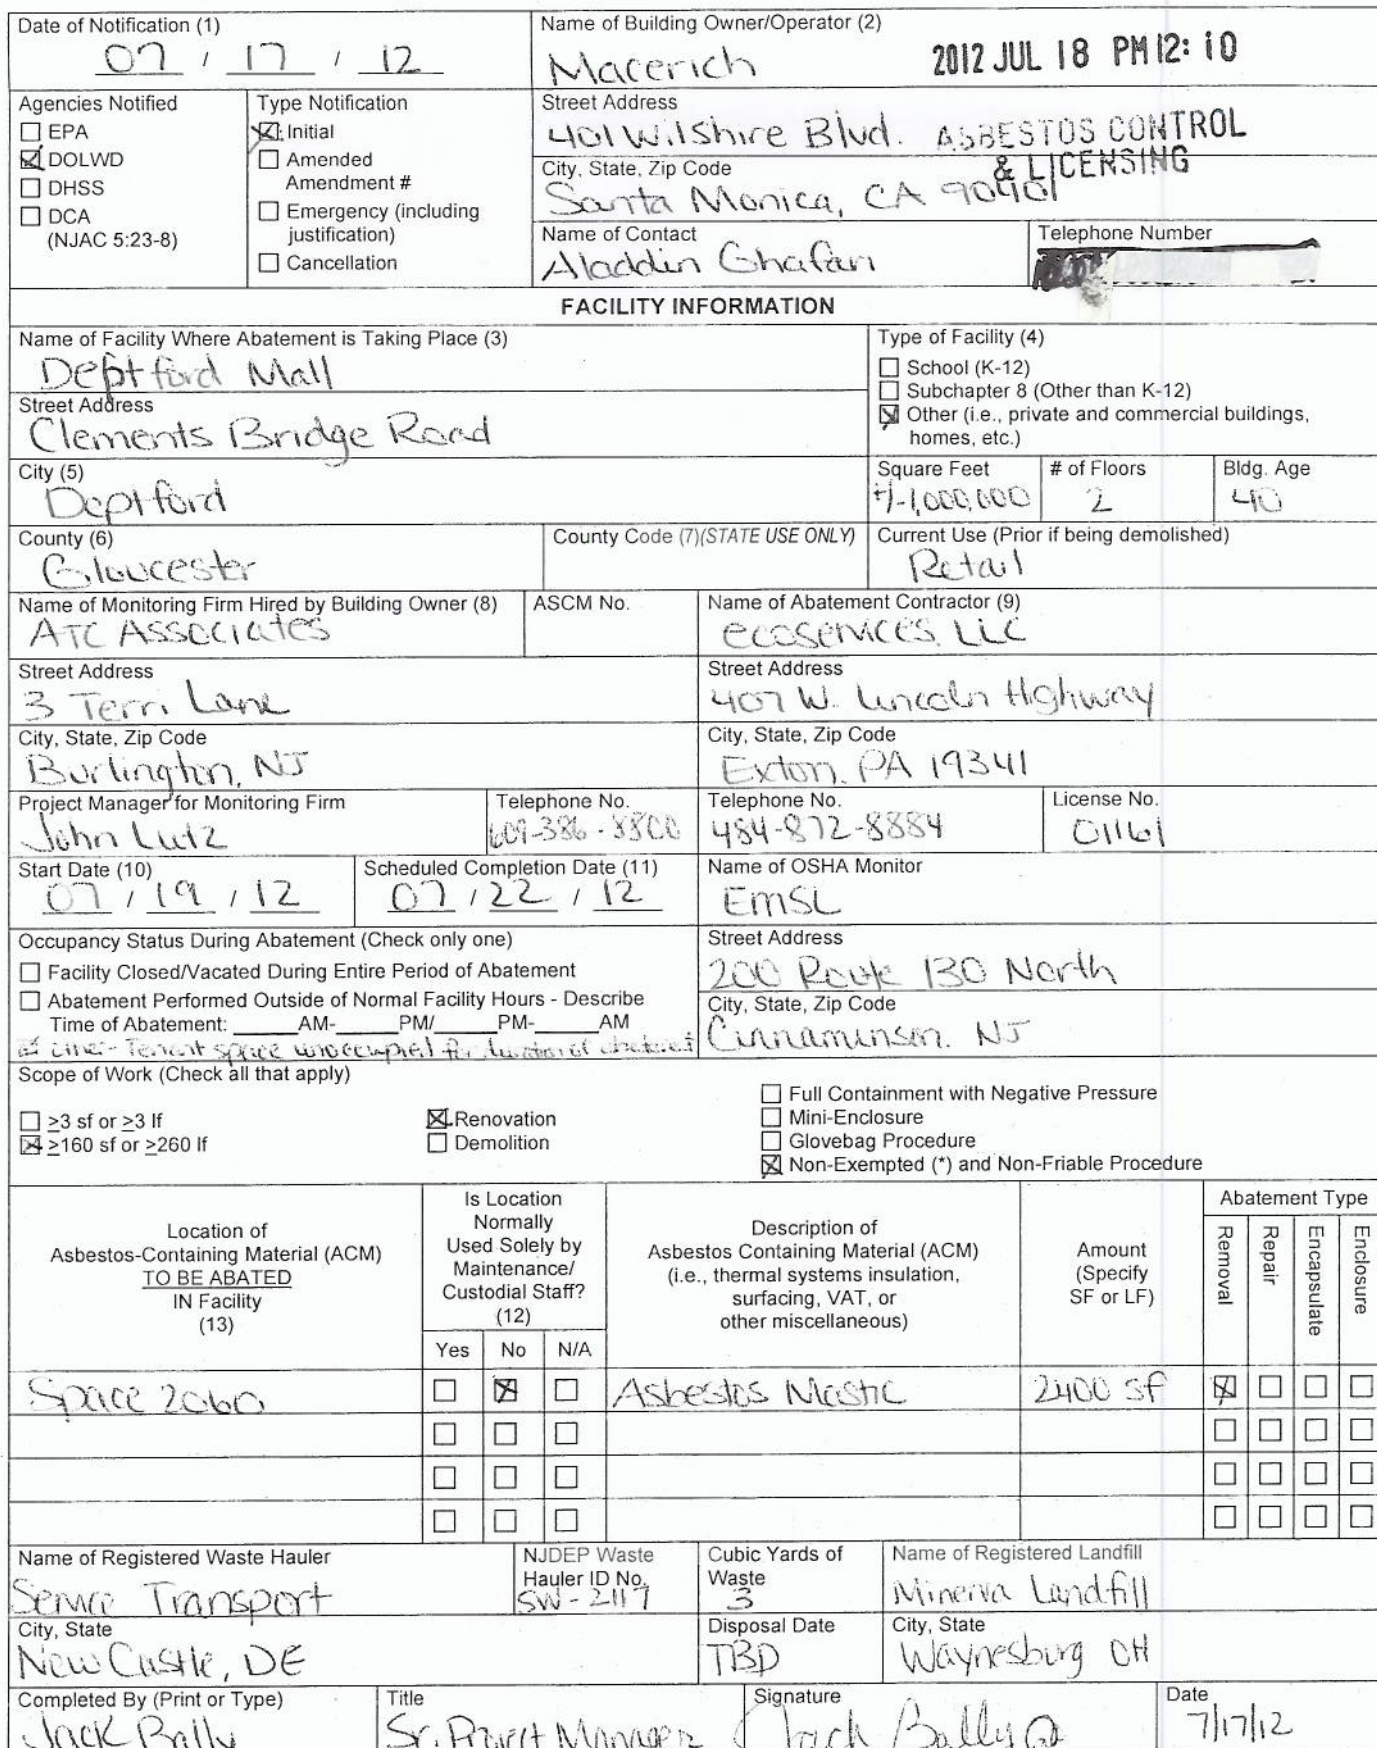 Date of Notification (1)
07 / 17 / 12
Name of Building Owner/Operator (2)
Macerich
2012 JUL 18 PM 12: 10
Agencies Notified
EPA
DOLWD
DHSS
DCA
(NJAC 5:23-8)
Type Notification
Initial
Amended
Amendment #
Emergency (including
justification)
Cancellation
Street Address
401 Wilshire Blvd.
ASBESTOS CONTROL
& LICENSING
City, State, Zip Code
Santa Monica, CA 90401
Name of Contact
Aladdin Ghafari
Telephone Number
FACILITY INFORMATION
Name of Facility Where Abatement is Taking Place (3)
Deptford Mall
Street Address
Clements Bridge Road
City (5)
Deptford
County (6)
Gloucester
County Code (7)(STATE USE ONLY)
Type of Facility (4)
School (K-12)
Subchapter 8 (Other than K-12)
Other (i.e., private and commercial buildings,
homes, etc.)
Square Feet
+/-1,000,000
# of Floors
2
Bldg. Age
40
Current Use (Prior if being demolished)
Retail
Name of Monitoring Firm Hired by Building Owner (8)
ATC Associates
ASCM No.
Street Address
3 Terri Lane
City, State, Zip Code
Burlington, NJ
Project Manager for Monitoring Firm
John Lutz
Telephone No.
609-386-8800
Name of Abatement Contractor (9)
ecoservices, LLC
Street Address
407 W. Lincoln Highway
City, State, Zip Code
Exton, PA 19341
Telephone No.
484-872-8884
License No.
01161
Start Date (10)
07 / 19 / 12
Scheduled Completion Date (11)
07 / 22 / 12
Name of OSHA Monitor
EMSL
Occupancy Status During Abatement (Check only one)
Facility Closed/Vacated During Entire Period of Abatement
Abatement Performed Outside of Normal Facility Hours - Describe
Time of Abatement: ______AM-______PM/______PM-______AM
Tenant space unoccupied for duration of
Street Address
200 Route 130 North
City, State, Zip Code
Cinnaminson, NJ
Scope of Work (Check all that apply)
>3 sf or >3 lf
>160 sf or >260 lf
Renovation
Demolition
Full Containment with Negative Pressure
Mini-Enclosure
Glovebag Procedure
Non-Exempted (*) and Non-Friable Procedure
Location of
Asbestos-Containing Material (ACM)
TO BE ABATED
IN Facility
(13)
Is Location
Normally
Used Solely by
Maintenance/
Custodial Staff?
(12)
Yes No N/A
Description of
Asbestos Containing Material (ACM)
(i.e., thermal systems insulation,
surfacing, VAT, or
other miscellaneous)
Amount
(Specify
SF or LF)
Abatement Type
Removal
Repair
Encapsulate
Enclosure
Space 2060 Asbestos Mastic 2400 SF
Name of Registered Waste Hauler
Service Transport
NJDEP Waste
Hauler ID No.
SW-2117
Cubic Yards of
Waste
3
Name of Registered Landfill
Minerva Landfill
City, State
New Castle, DE
Disposal Date
TBD
City, State
Waynesburg OH
Completed By (Print or Type)
Jack Bally
Title
Sr. Project Manager
Signature
Jack Bally
Date
7/17/12